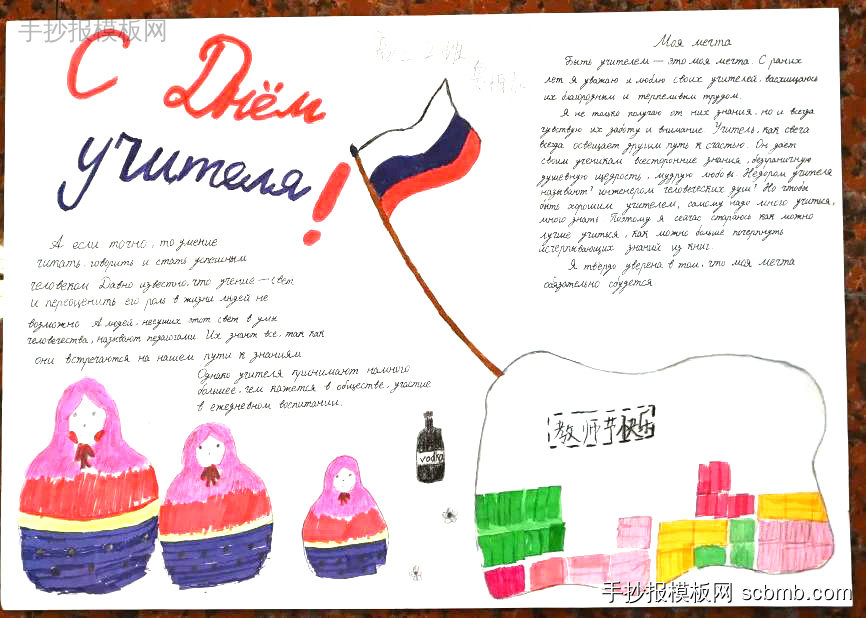 手抄报模板网
С Днём
учителя!
Моя мечта
Быть учителем — это моя мечта. С раних
лет я уважаю и люблю своих учителей, васхищаюсь
их благородным и терпеливым трудом.
Я не только получаю от них знания, но и всегда
чувствую их заботу и внимание. Учитель, как свеча
всегда освещает другим путь к счастью. Он дает
своим ученикам всесторонние знания, безграничную
душевную щедрость, мудрую любовь. Недаром учителя
называют "инженером человеческих душ"! Но чтобы
быть хорошим учителем, самому надо много учиться,
много знать. Поэтому я сейчас стараюсь как можно
лучше учиться, как можно больше почерпнуть
исчерпывающих знаний из книг.
Я твердо уверена в том, что моя мечта
обязательно сбудется.
А если точно, то умение
читать, говорить и стать успешным
человеком. Давно известно, что учение — свет
и переоценить его роль в жизни людей не
возможно. А людей, несущих этот свет в умы
человечества, называют педагогами. Их знают все, так как
они встречаются на нашем пути к знаниям.
Однако учителя принимают намного
большее, чем кажется в обществе, участие
в ежедневном воспитании.
vodka
教师节快乐
手抄报模板网 scbmb.com